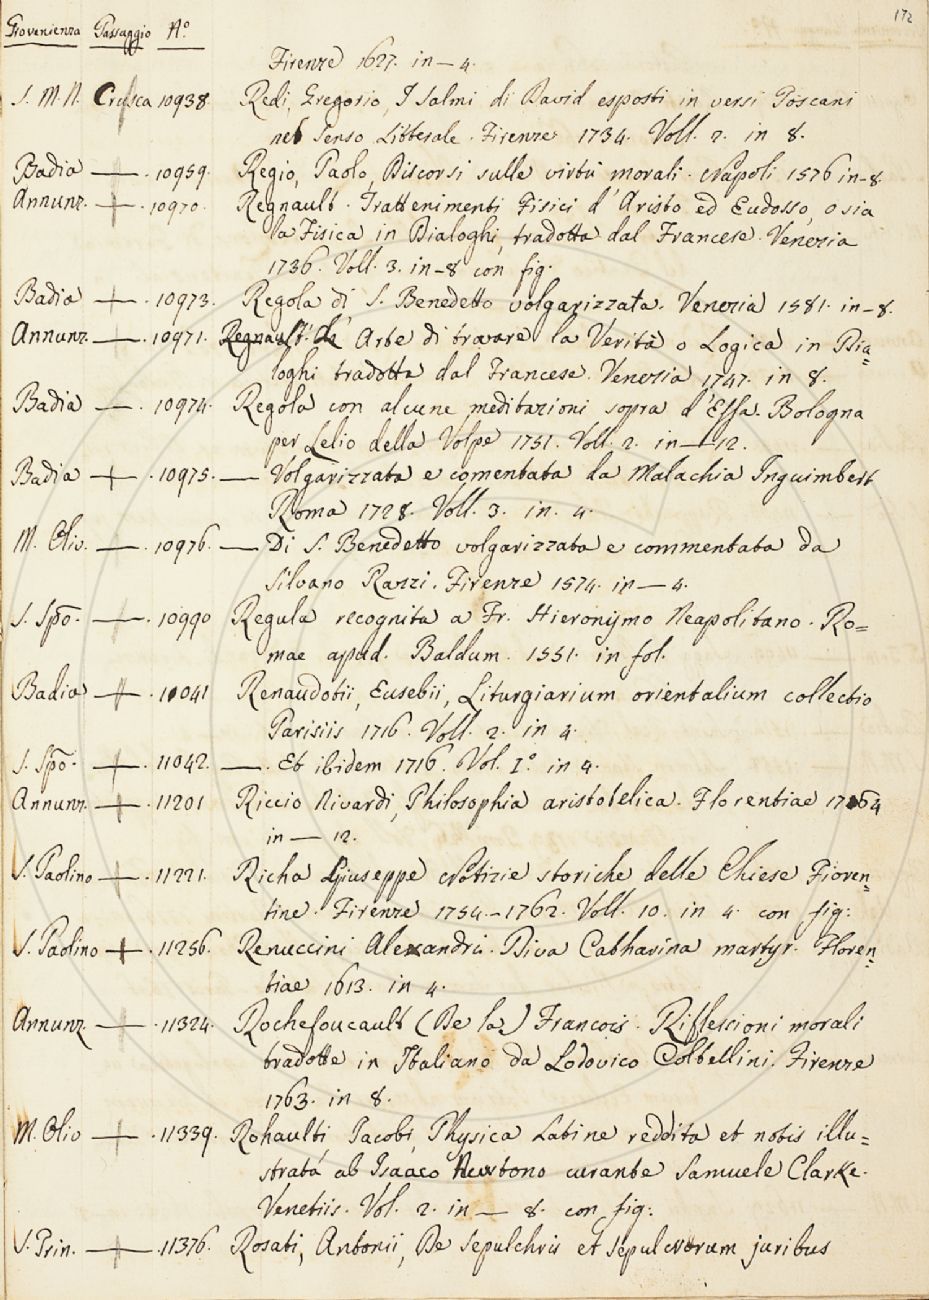 172
Provenienza Passaggio N.º
Firenze 1627. in — 4.
S. M. N. Crusca 10938 Redi, Gregorio, I Salmi di David esposti in versi Toscani
nel Senso Litterale. Firenze 1734. Voll. 2. in 8.
Badia — 10959. Regio, Paolo, Discorsi sulle virtù morali. Napoli 1576 in-8.
Annunz. — 10970. Regnault. Trattenimenti Fisici d'Aristo ed Eudosso, o sia
la Fisica in Dialoghi, tradotta dal Francese. Venezia
1736. Voll. 3. in-8 con fig.
Badia — 10973. Regola di S. Benedetto volgarizzata. Venezia 1581. in-8.
Annunz. — 10971. Regnault. Arte di trovare la Verità o Logica in Dia=
loghi tradotta dal Francese. Venezia 1747. in 8.
Badia — 10974. Regola con alcune meditazioni sopra d'Essa. Bologna
per Lelio della Volpe 1751. Voll. 2. in — 12.
Badia — 10975. — Volgarizzata e comentata da Malachia Inguimbert
Roma 1728. Voll. 3. in. 4.
M. Oliv. — 10976. — Di S. Benedetto volgarizzata e commentata da
Silvano Razzi. Firenze 1574. in — 4.
S. Spõ. — 10990 Regula recognita a Fr. Hieronijmo Neapolitano. Ro=
mae apud. Baldum. 1551. in fol.
Badia — 11041 Renaudotii, Eusebii, Liturgiarium orientalium collectio
Parisiis 1716. Voll. 2. in 4.
S. Spõ. — 11042. —. Et ibidem 1716. Vol. I.º in 4.
Annunz. — 11201 Riccio Nivardi, Philosophia aristotelica. Florentiae 1764
in — 12.
S. Paolino — 11221. Richa Giuseppe Notizie storiche delle Chiese Fioren=
tine. Firenze 1754.-1762. Voll. 10. in 4. con fig:
S. Paolino — 11256. Renuccini Alexandri. Diva Catharina martyr. Floren=
tiae 1613. in 4.
Annunz. — 11324. Rochefoucault (De la) Francois. Riflessioni morali
tradotte in Italiano da Lodovico Coltellini. Firenze
1763. in 8.
M. Oliv — 11339. Rohaulti Jacobi Physica Latine reddita et notis illu=
strata ab Isaaco Newtono curante Samuele Clarke.
Venetiis. Vol. 2. in — 8. con fig:
S. Prin. — 11376. Rosati, Antonii, De Sepulchris et Sepulcrorum juribus